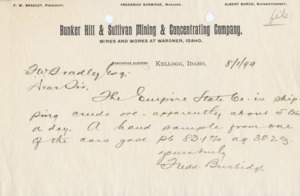 F. W. BRADLEY, PRESIDENT. FREDERICK BURBIDGE, MANAGER. ALBERT BURCH, SUPERINTENDENT.
Bunker Hill & Sullivan Mining & Concentrating Company,
MINES AND WORKS AT WARDNER, IDAHO.
KELLOGG, IDAHO, 8/1/99
F W Bradley Esq.
Dear Sir,
The Empire State Co. is ship
ping crude ore - apparently about 5
a day. A hand sample from one
of the cars gave pb 63.1% ag 38.2 oz
Fredk Burbidge